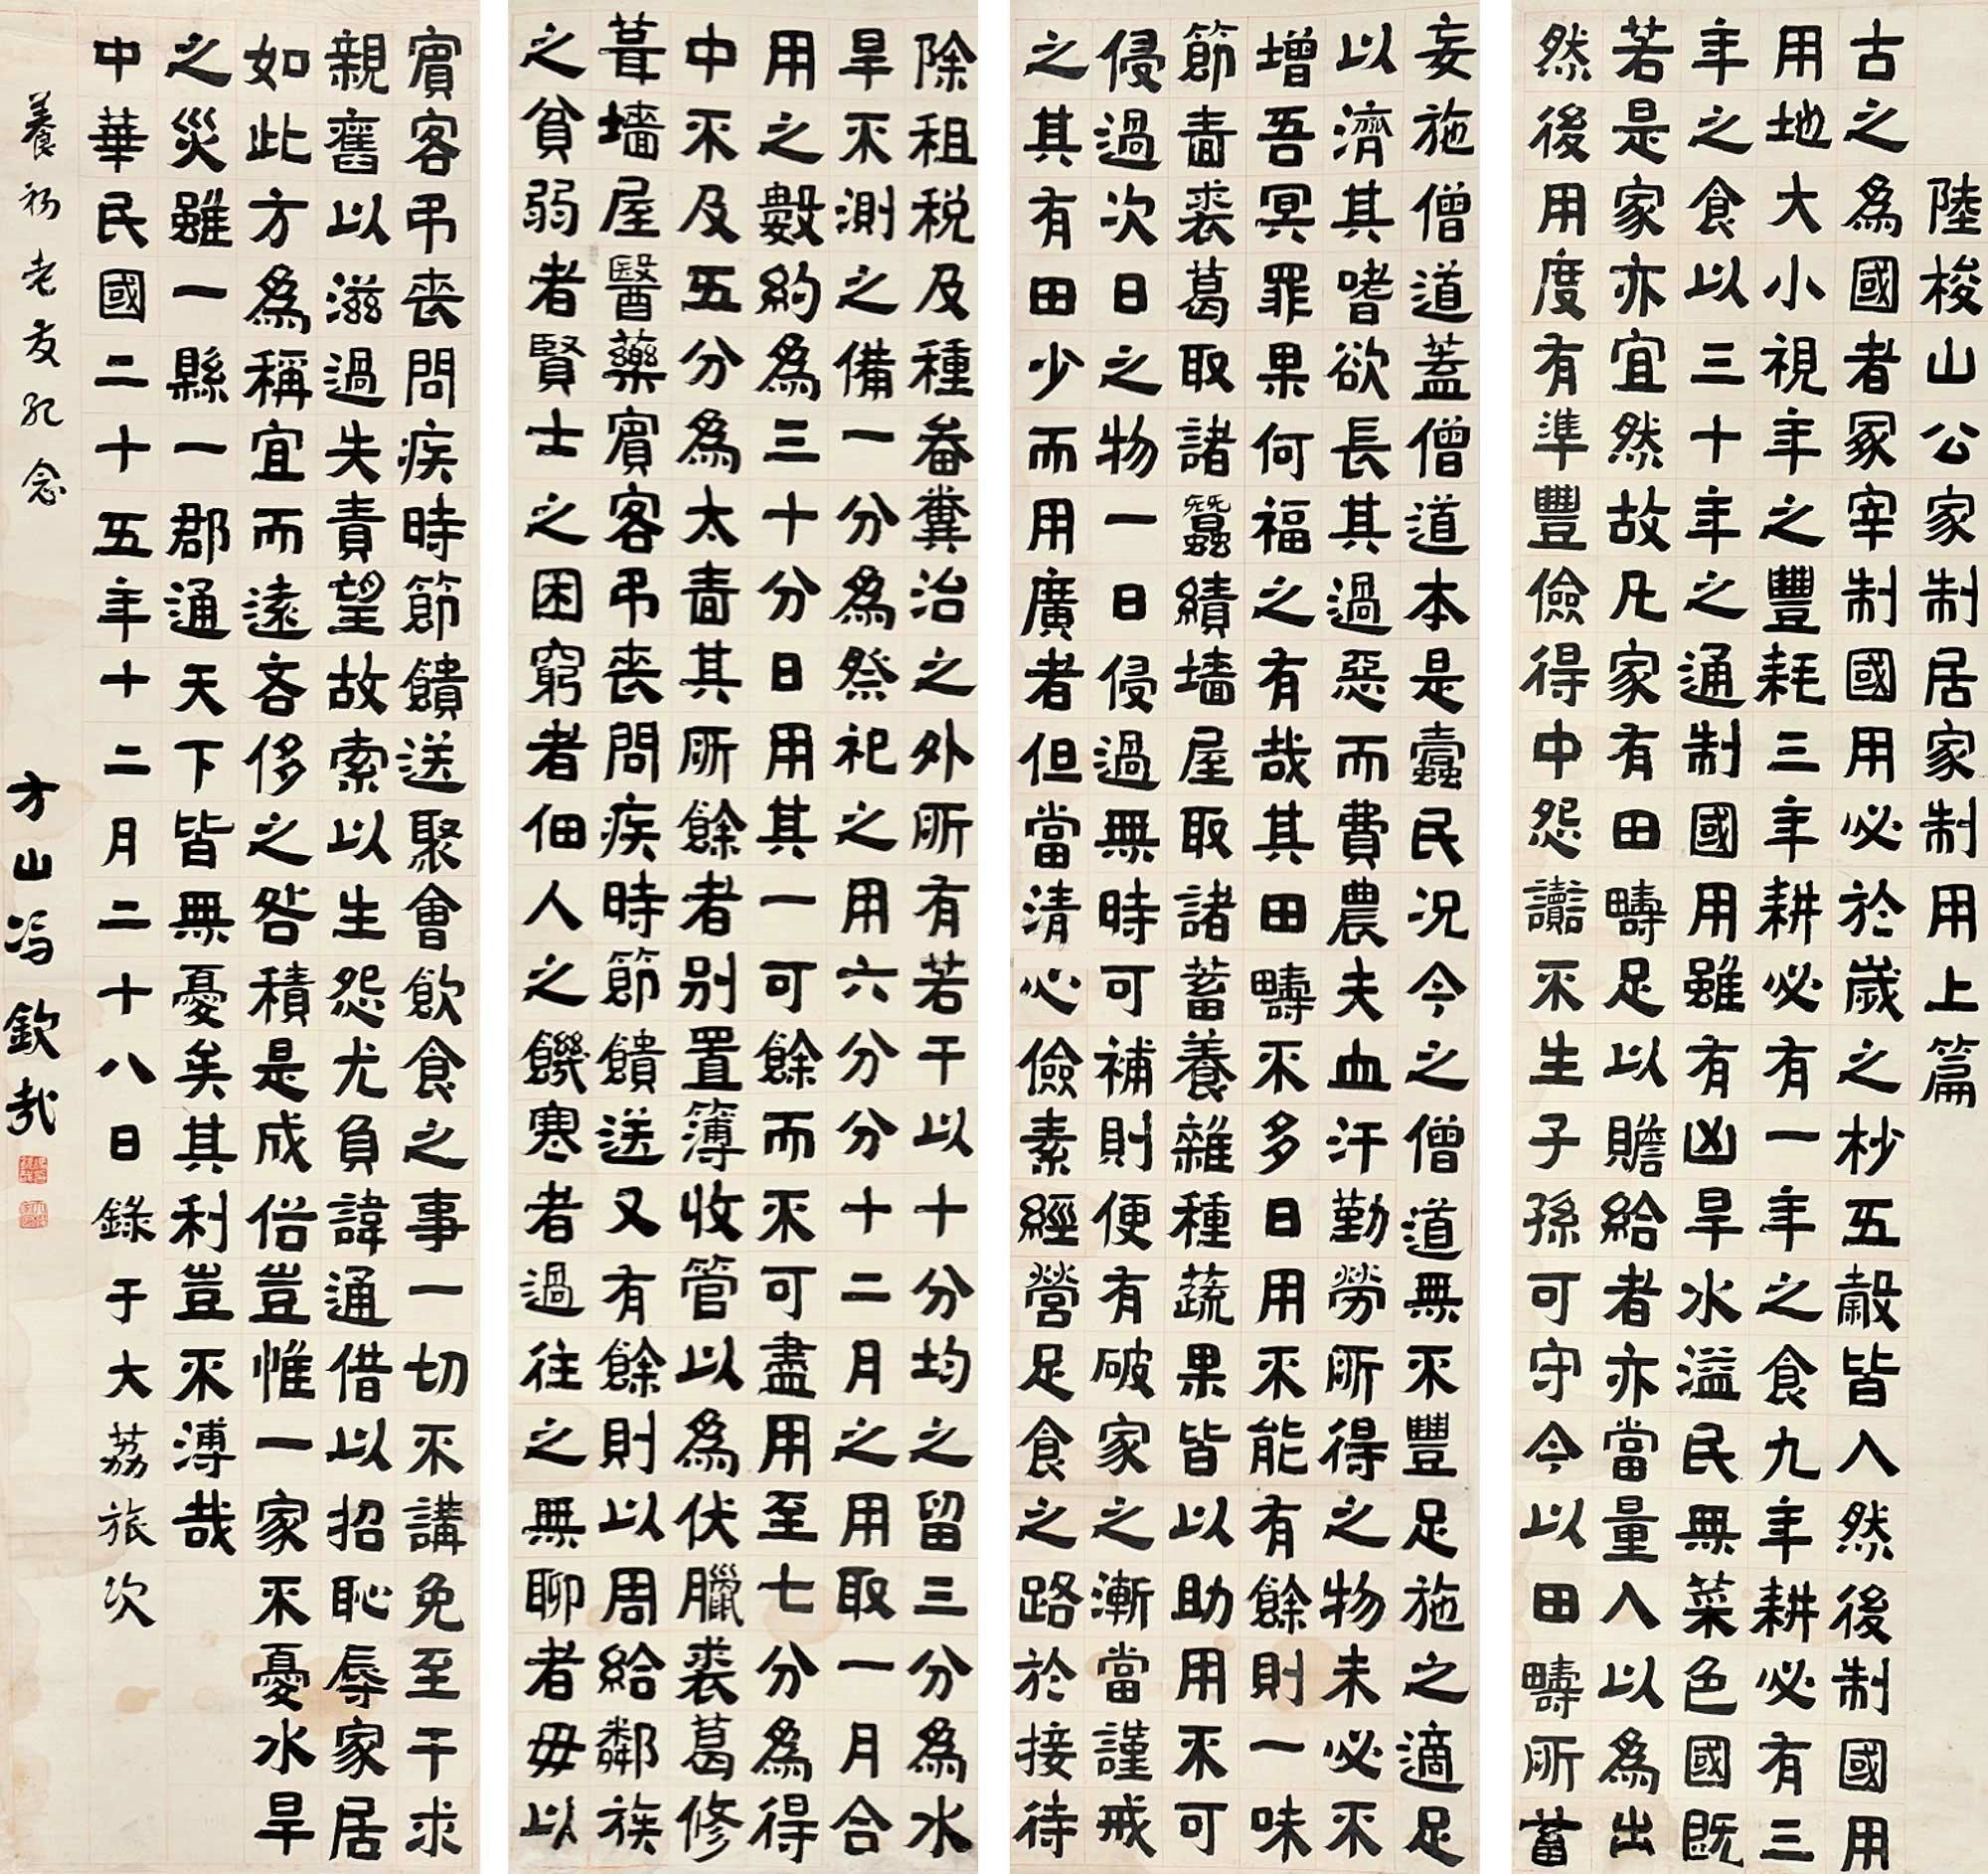 陸梭山公家制居家制用上篇
古之為國者冢宰制國用必於歲之杪五穀皆入然後制國用
用地大小視年之豐耗三年耕必有一年之食九年耕必有三
年之食以三十年之通制國用雖有凶旱水溢民無菜色國既
若是家亦宜然故凡家有田疇足以贍給者亦當量入以為出
然後用度有準豐儉得中怨讟不生子孫可守今以田疇所蓄
除租稅及種畚糞治之外所有若干以十分均之留三分為水
旱不測之備一分為祭祀之用六分分十二月之用取一月合
用之數約為三十分日用其一可餘而不可盡用至七分為得
中不及五分為太嗇其所餘者別置簿收管以為伏臘裘葛修
葺墻屋醫藥賓客弔喪問疾時節饋送又有餘則以周給鄰族
之貧弱者賢士之困窮者佃人之饑寒者過往之無聊者毋以
妄施僧道蓋僧道本是蠹民況今之僧道無不豐足施之適足
以濟其嗜欲長其過惡而費農夫血汗勤勞所得之物未必不
增吾冥罪果何福之有哉其田疇不多日用不能有餘則一味
節嗇裘葛取諸蠶績墻屋取諸蓄養雜種蔬果皆以助用不可
侵過次日之物一日侵過無時可補則便有破家之漸當謹戒
之其有田少而用廣者但當清心儉素經營足食之路於接待
賓客弔喪問疾時節饋送聚會飲食之事一切不講免至干求
親舊以滋過失責望故索以生怨尤負諱通借以招恥辱家居
如此方為稱宜而遠吝侈之咎積是成俗豈惟一家不憂水旱
之災雖一縣一郡通天下皆無憂矣其利豈不溥哉
中華民國二十五年十二月二十八日錄于大荔旅次
養初老友紀念
方山馮欽哉